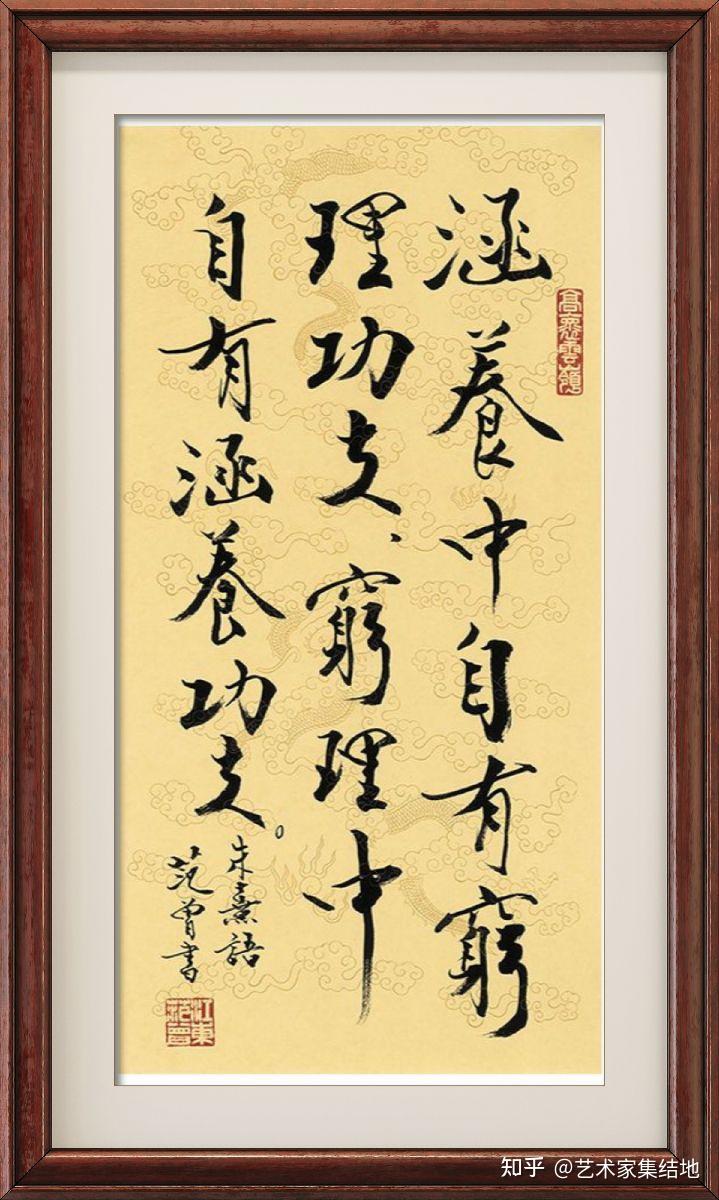 涵養中自有窮
理功夫、窮理中
自有涵養功夫。
朱熹語
范曾書
江東
范曾
知乎 @艺术家集结地